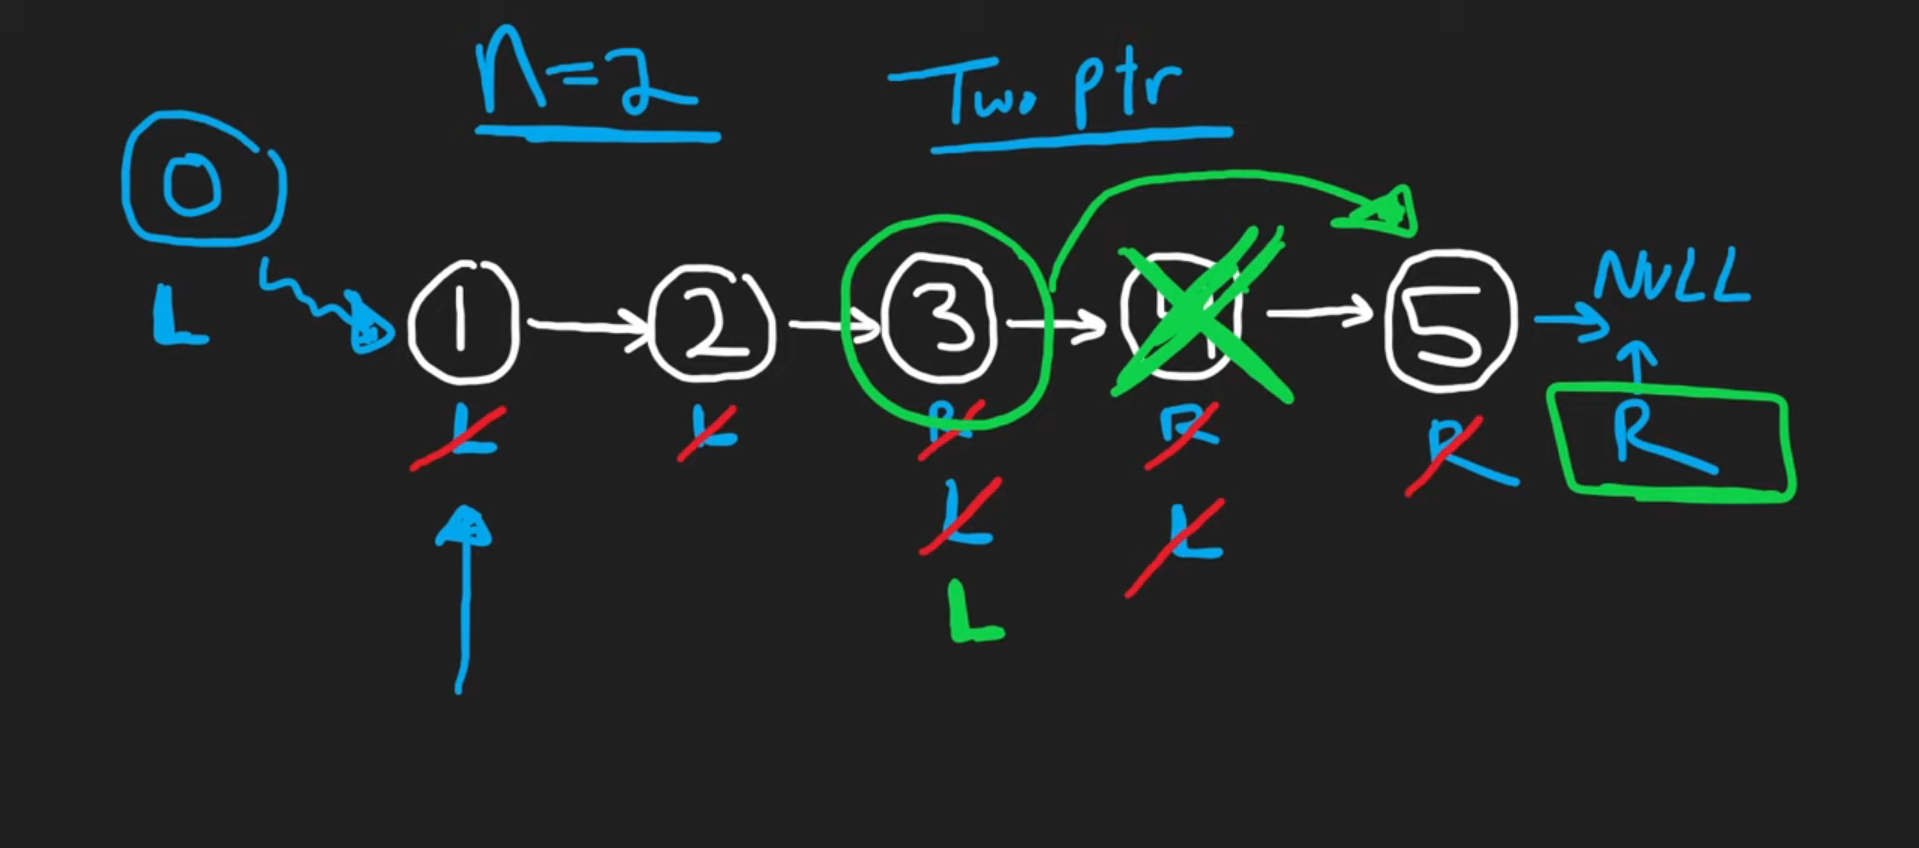 n=2 Two ptr
0
L 1 2 3 4 5 NULL
L L R R R R
L L
L